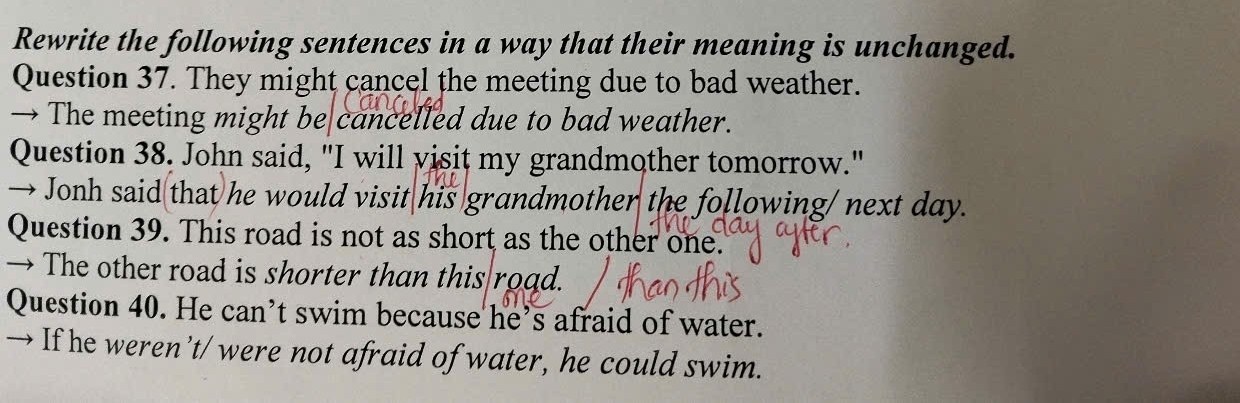 Rewrite the following sentences in a way that their meaning is unchanged.
Question 37. They might cancel the meeting due to bad weather.
Canceled
→ The meeting might be cancelled due to bad weather.
Question 38. John said, "I will visit my grandmother tomorrow."
the
→ Jonh said (that) he would visit his grandmother the following/ next day.
the day after.
Question 39. This road is not as short as the other one.
→ The other road is shorter than this road. / than this
one
Question 40. He can't swim because he's afraid of water.
→ If he weren't/ were not afraid of water, he could swim.